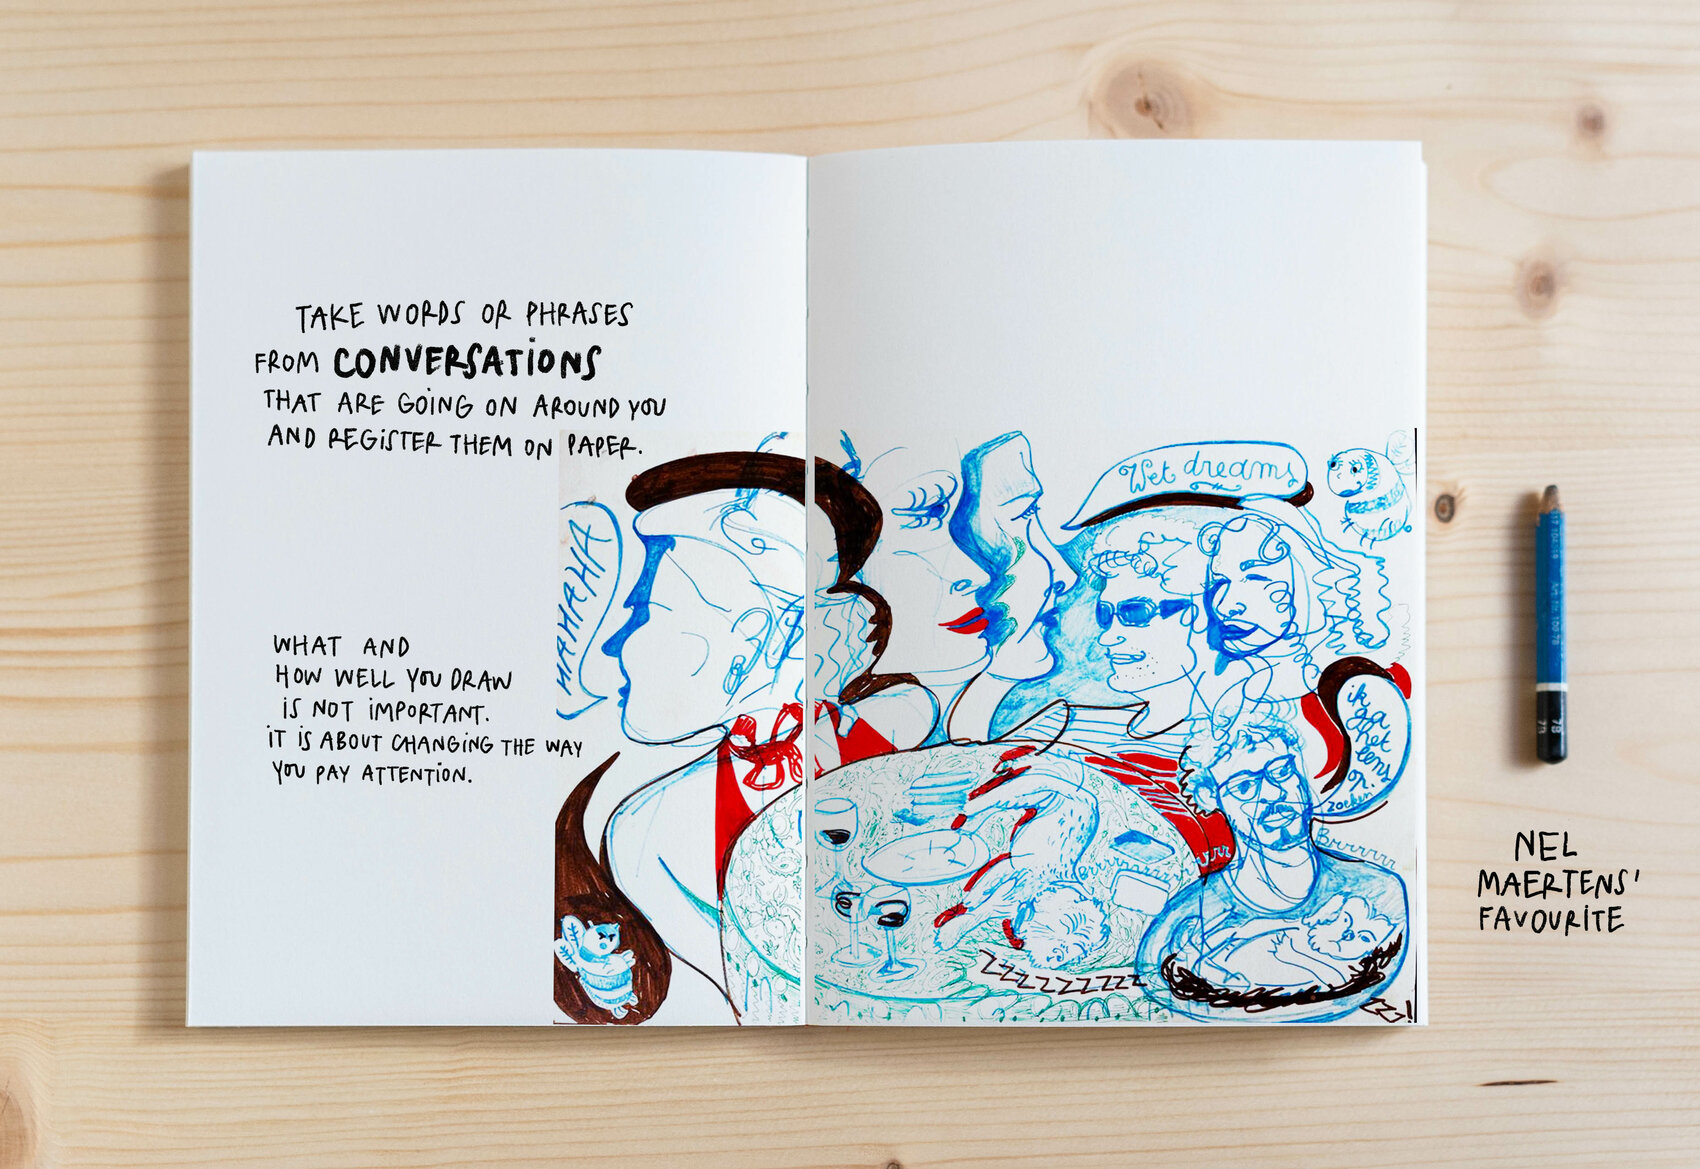 TAKE WORDS OR PHRASES
FROM CONVERSATIONS
THAT ARE GOING ON AROUND YOU
AND REGISTER THEM ON PAPER.
WHAT AND
HOW WELL YOU DRAW
IS NOT IMPORTANT.
IT IS ABOUT CHANGING THE WAY
YOU PAY ATTENTION.
HAHAHAHA
Wet dreams
ik
ga
het
eens
op
zoeken.
Brrrrrrr
Brrrrrrrrrr
ZZZZZZZZZZ
ZZZ!
NEL
MAERTENS'
FAVOURITE